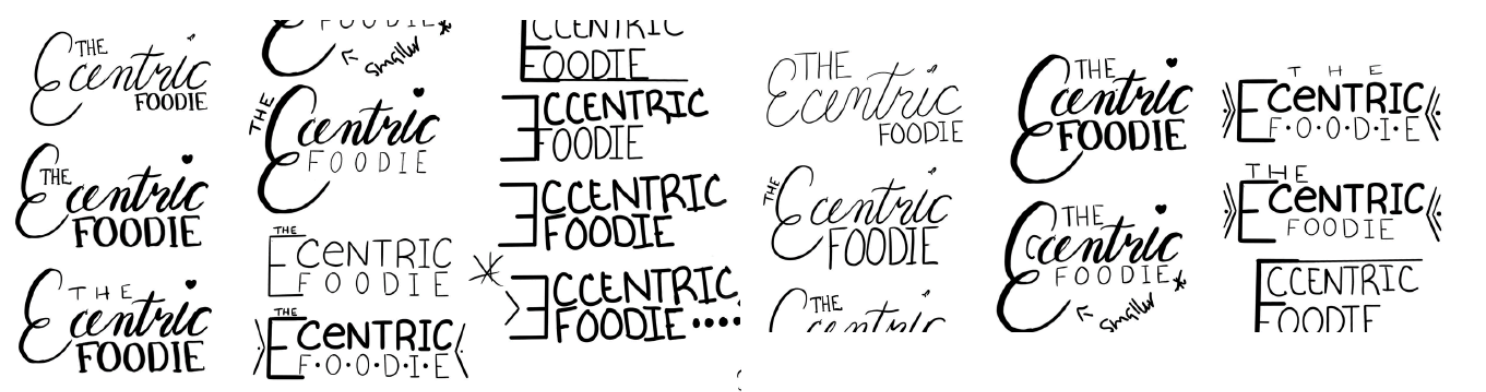 THE
Ecentric
FOODIE
THE
Ecentric
FOODIE
THE
Ecentric
FOODIE
FOODIE*
smaller
THE
Ecentric
FOODIE
THE
ECeNTRIC
FOODIE
THE
ECeNTRIC
F·O·O·D·I·E
ECCENTRIC
FOODIE
ECCENTRIC
FOODIE
ECCENTRIC
FOODIE
ECCENTRIC
FOODIE••••
THE
Ecentric
FOODIE
THE
Ecentric
FOODIE
THE
Ecentric
THE
Ecentric
FOODIE
THE
Eccentric
FOODIE*
smaller
THE
ECeNTRIC
F·O·O·D·I·E
THE
ECeNTRIC
FOODIE
ECCENTRIC
FOODIE